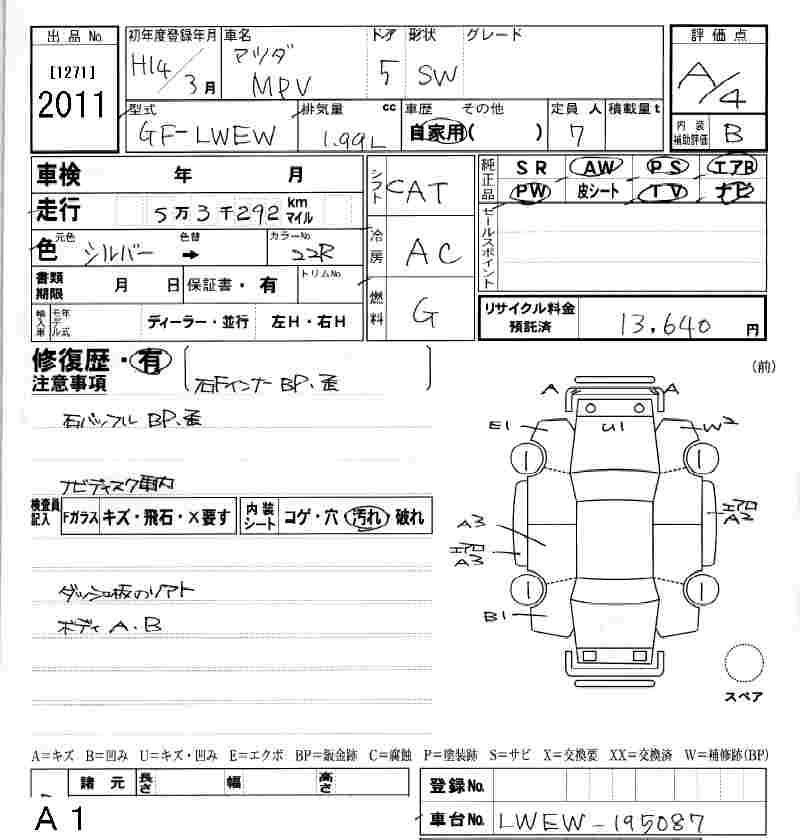 出品No. [1271] 2011
初年度登録年月 H14/3月 車名 マツダ MPV ドア 5 形状 SW グレード
評価点 A/4
型式 GF-LWEW 排気量 cc 1.99L 車歴 自家用 その他( ) 定員 人 7 積載量 t
内装補助評価 B
車検 年 月
走行 5万3千292 km マイル
色 元色 シルバー 色替 ➡ カラーNo. 22R
書類期限 月 日 保証書・有 トリムNo.
輸入車 年式モデル ディーラー・並行 左H・右H
シフト CAT
冷房 AC
燃料 G
純正品 SR AW PS エアB
PW 皮シート TV ナビ
セールスポイント
リサイクル料金預託済 13.640 円
修復歴・有 [右Fインナー BP.歪]
注意事項
右バッフル BP.歪
ナビディスク車内
検査員記入 Fガラス キズ・飛石・X要す 内装シート コゲ・穴・汚れ・破れ
ボディ A.B
(前)
A A
E1 U1 W2
A3 エアロ A3
エアロ A2
B1
スペア
A=キズ B=凹み U=キズ・凹み E=エクボ BP=鈑金跡 C=腐蝕 P=塗装跡 S=サビ X=交換要 XX=交換済 W=補修跡(BP)
諸元 長さ 幅 高さ
登録No.
A1
車台No. LWEW-195087